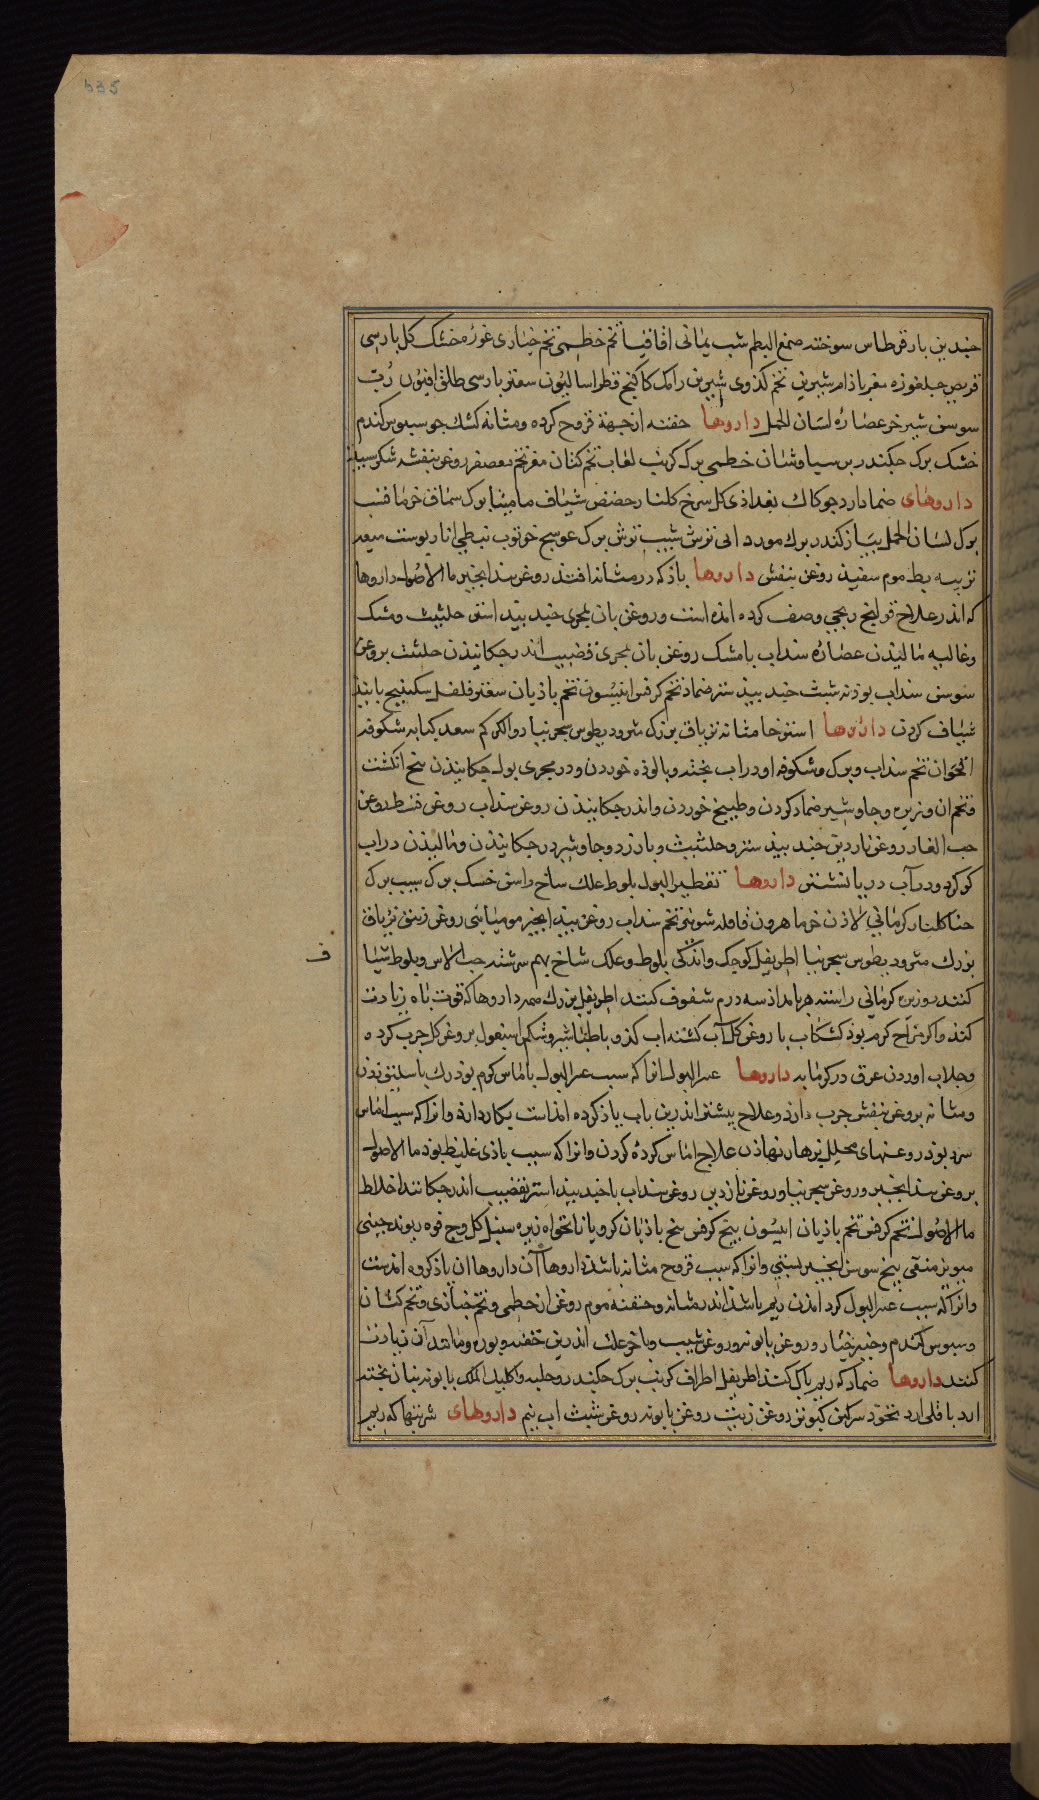 535
چند بین بار قرطاس سوخته صمغ البطم شب یمانی اقاقیا تخم خطمی تخم خیاری غوره خشک کل بارسی
قریص جلغوزه مغز باذام شیرین تخم کذوی شیرین رامک کاکنج قطراسالیون سعتر بارسی طلق افیون رُبّ
سوسن شیر خر عصاره لسان الحمل داروها حقنه از جهة قروح کرده ومثانه کشک جو سبوس کندم
خشک برک چکندر برسیاوشان خطمی برک کرنب لعاب تخم کتان مغز تخم معصفر روغن بنفشه شکر سپید
داروهای ضماد ارد جو کاک بغدادی کل سرخ کلنار حضض شیاف مامیثا برک سماق خرما قسب
برک لسان الحمل بیاز کندر برک مورد ابی ترش سیب ترش برک عوسج خرنوب نبطی انار پوست میعه
تر پیه بط موم سفید روغن بنفش داروها باذ که در مثانه افتد روغن بیذ انجیر ما الاصول داروها
که اندر علاج قولنج ریحی وصف کرده امذه است وروغن بان بمجری چند بیذ استر حلتیث ومشک
وغالیه مالیذن عصاره سذاب بامشک روغن بان بمجری قضیب اندر چکانیذن حلتیث بروغن
سوسن سذاب بوذنه شبث جند بیذ ستر ضماد تخم کرفس انیسون تخم باذیان سعتر فلفل سکبینج بابیذ
شیاف کردن داروها استرخا مثانه تریاق بزرک مثرودیطوس سجرنیا دوالکرکم سعد کبابه شکوفه
اقحوان تخم سذاب وبرک وشکوفه او در اب پخته وپالوذه خوردن ودر مجری بول چکانیذن سخ انکشت
وتخم ان وزیره وجاوشیر ضماد کردن وطبیخ خوردن واندر چکانیذن روغن سذاب روغن قسط روغن
حب الغار روغن ناردین جند بیذ ستر وحلتیث وبارزد وجاوشیر در چکانیذن ومالیذن در اب
کوکرد ودر آب دریا نشستن داروها تقطیر البول بلوط علک ساخ راسن خشک برک سیب برک
حنا کلنار کرمانی لاذن خرما هرون قاقله شونیز تخم سذاب روغن بیذ انجیر مومیایی روغن زنبق تریاق
بزرک مثرودیطوس سجرنیا اطریفل کوچک واندکی بلوط وعلک شاخ بهم سرشته حب الاس وبلوط شیا
کنند وزیره کرمانی راسته هر بامداذ سه درم سفوف کنند اطریفل بزرک همه داروها که قوت باه زیادت
کند واکر مزاج کرم بوذ کشکاب با روغن کل آب کشنه اب کذو باطباشیر وشکم اسبغول بروغن کل چرب کرده
وجلاب اوردن عرق در کرمابه داروها عسر البول انرا که سبب عسر البول باماس کرم بوذ رک باسلیق زدن
ومثانه بروغن بنفش چرب دارذ وعلاج بیشتر اندرین باب یاذ کرده امذاست بکار دارذ وانرا که سبب اماس
سرد بوذ روغنهای محلل بزهار نهاذن علاج اماس کرده کردن وانرا که سبب باذی غلیظ بوذ ما الاصول
بروغن بیذ انجیر وروغن سجرنیا وروغن ناردین روغن سذاب باجند بیذ استر بقضیب اندر چکانند اخلاط
ما الاصول تخم کرفس تخم باذیان انیسون بیخ کرفس بیخ باذیان کرویا نانخواه زیره سنبل کل وج فوه ریوند چینی
مویز منقی بیخ سوسن انجیر بستی وانرا که سبب قروح مثانه باشد داروها آن داروها ان یاذ کرده امذست
وانرا که سبب عسر البول کرد امذن ریم باشذ اندر مثانه وحقنه موم روغن از خطمی وتخم خبازی وتخم کتان
وسبوس کندم وخیار وروغن بابونه وروغن شبث وباخر علک اندرین حقنه وبوره ومانند آن زیادت
کنند داروها ضماد که ریم پاک کند اطریفل اطراف کرنب برک چکندر وحلبه واکلیل الملک بابونه بنیان پخته
ارد باقلی ارد نخود سرکین کبوتر روغن زیت روغن بابونه روغن شبث اب نیم داروهای شربتها که ریم
ف